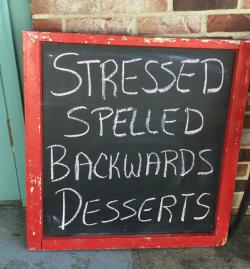 STRESSED
SPELLED
BACKWARDS
DESSERTS